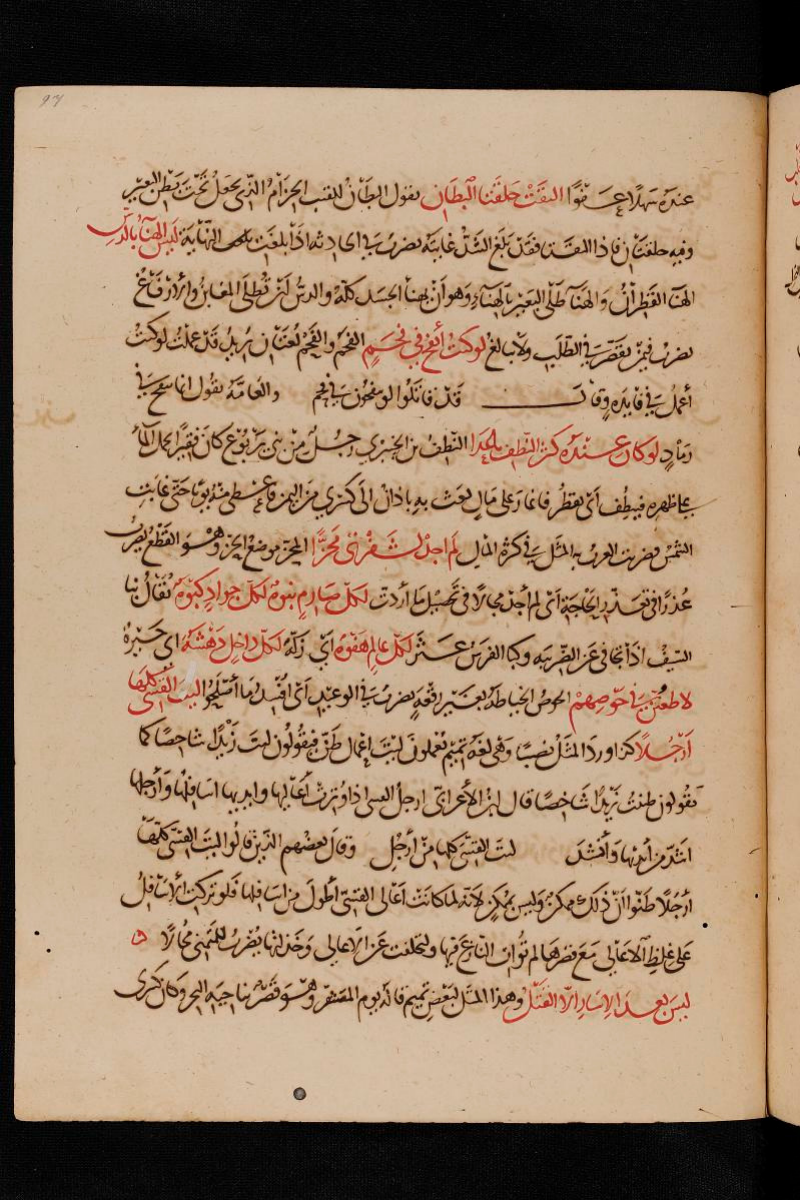 عنده سهلا عفوا التقت حلقتا البطان يقول البطان للقتب الحزام الذى يجعل تحت بطن البعير
وفيه حلقتان فاذا التقتا فقد بلغ الشد غايته يضرب فى الحادثة اذا بلغت النهاية ليس الهناء بالدس
الهنا القطران والهنا طلى البعير بالهناء وهو ان يهنا الجسد كله والدس ان تطلى المغابن والارفاغ
يضرب فيمن يقصر فى الطلب ولا يبالغ لو كنت أنفخ فى فحم الفحم والفحم لغتان يريد قد عملت لو كنت
أعمل فى فايدة وقال قد قاتلوا لو ينفخون فى فحم والعامة يقول انما ينفخ فى
رماد لو كان عنده كنز النطف ما عدا النطف بن الخيبرى رجل من بنى يربوع كان فقيرا يحمل الماء
على ظهره فينطف أى يقطر فاغار على مال بعث به باذان الى كسرى من اليمن فاعطى منه يوما حتى غابت
الشمس فضربت العرب به المثل فى كثرة المال لم اجد لشفرتى محزا المحز موضع الحز وهو القطع يضرب
عذرا فى تعذر الحاجة أى لم أجد مجالا فى تحصيل ما أردت لكل صارم نبوة لكل جواد كبوة يقال نبا
السيف اذا تجافى عن الضريبة وكبا الفرس عثر لكل عالم هفوة أى زلة لكل داخل دهشة اى حيرة
لاطعنن فى حوصهم الحوص الخياطة بغير رقعة يضرب فى الوعيد أى افسد ما أصلحوا ليت القسى كلها
أرجلا كذا ورد المثل نصبا وهى لغة تميم يعملون ليت إعمال ظن فيقولون ليت زيدا شاخصا كما
يقولون ظننت زيدا شاخصا قال ابن الأعرابى ارجل القسى اذا وترت أعاليها وايديها اسافلها وأرجلها
اشد من أيديها وأنشد ليت القسى كلها من أرجل وقال بعضهم الذين قالوا ليت القسى كلها
أرجلا ظنوا ان ذلك ممكن وليس بممكن لانه لما كانت أعالى القسى أطول من اسافلها فلو تركت الاسافل
على غلظ الاعالى مع قصرها لم تؤات النازع فيها ولتخلفت عن الاعالى وخذلتها يضرب للمتمنى محالا ه
ليس بعد الاسار الا القتل وهذا المثل لبعض تميم قاله يوم المشقر وهو قصر بناحية البحر وكان كسرى